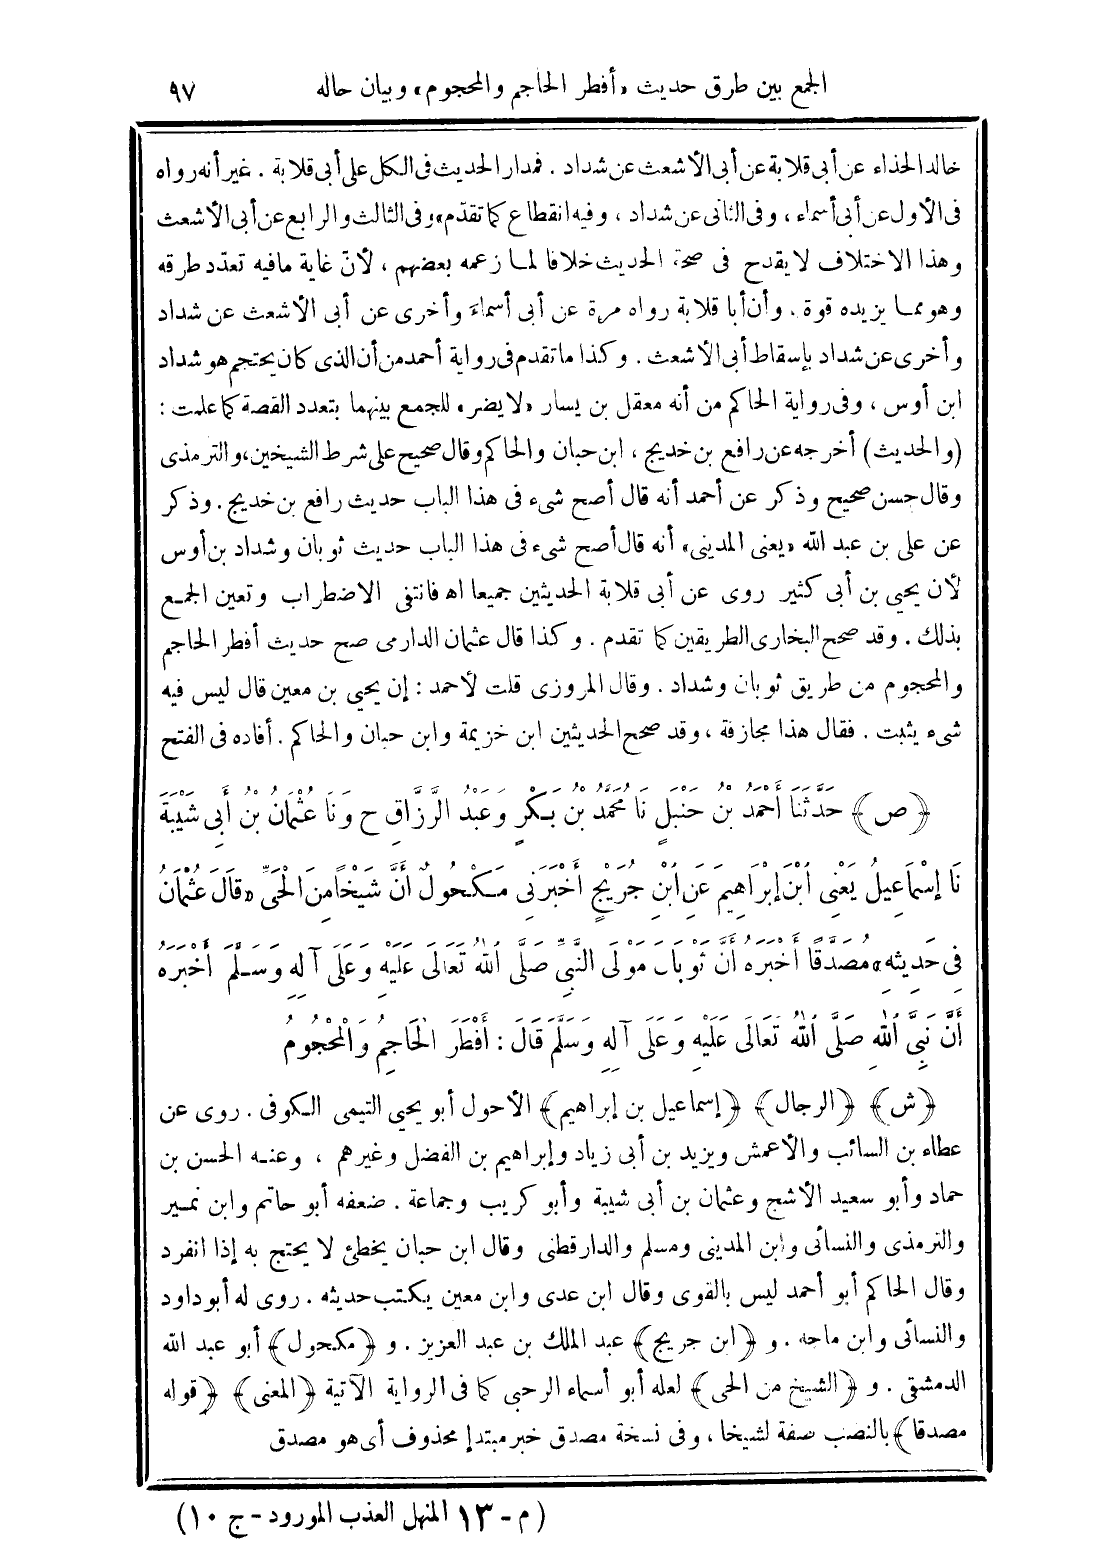 الجمع بين طرق حديث «أفطر الحاجم والمحجوم» وبيان حاله ٩٧
خالد الحذاء عن أبى قلابة عن أبى الأشعث عن شداد . فمدار الحديث فى الكل على أبى قلابة . غير أنه رواه
فى الأول عن أبى أسماء ، وفى الثانى عن شداد ، وفيه انقطاع كما تقدّم» وفى الثالث والرابع عن أبى الأشعث
وهذا الاختلاف لا يقدح فى صحة الحديث خلافا لما زعمه بعضهم ، لأنّ غاية مافيه تعدّد طرقه
وهو مما يزيده قوة . وأن أبا قلابة رواه مرة عن أبى أسماء وأخرى عن أبى الأشعث عن شداد
وأخرى عن شداد بإسقاط أبى الأشعث . وكذا ما تقدم فى رواية أحمد من أن الذى كان يحتجم هو شداد
ابن أوس ، وفى رواية الحاكم من أنه معقل بن يسار «لا يضر» للجمع بينهما بتعدد القصة كما علمت :
(والحديث) أخرجه عن رافع بن خديج ، ابن حبان والحاكم وقال صحيح على شرط الشيخين، والترمذى
وقال حسن صحيح وذكر عن أحمد أنه قال أصح شىء فى هذا الباب حديث رافع بن خديج . وذكر
عن على بن عبد الله «يعنى المدينى» أنه قال أصح شىء فى هذا الباب حديث ثوبان وشداد بن أوس
لأن يحيى بن أبى كثير روى عن أبى قلابة الحديثين جميعا اه فانتفى الاضطراب وتعين الجمع
بذلك . وقد صحح البخارى الطريقين كما تقدم . وكذا قال عثمان الدارمى صح حديث أفطر الحاجم
والمحجوم من طريق ثوبان وشداد . وقال المروزى قلت لأحمد : إن يحيى بن معين قال ليس فيه
شىء يثبت . فقال هذا مجازفة ، وقد صحح الحديثين ابن خزيمة وابن حبان والحاكم . أفاده فى الفتح
﴿ص﴾ حَدَّثَنَا أَحْمَدُ بْنُ حَنْبَلٍ نَا مُحَمَّدُ بْنُ بَكْرٍ وَعَبْدُ الرَّزَّاقِ ح وَنَا عُثْمَانُ بْنُ أَبِى شَيْبَةَ
نَا إِسْمَاعِيلُ يَعْنِى ابْنَ إِبْرَاهِيمَ عَنِ ابْنِ جُرَيْجٍ أَخْبَرَنِى مَكْحُولٌ أَنَّ شَيْخًا مِنَ الْحَىِّ «قَالَ عُثْمَانُ
فِى حَدِيثِهِ» مُصَدَّقًا أَخْبَرَهُ أَنَّ ثَوْبَانَ مَوْلَى النَّبِىِّ صَلَّى اللهُ تَعَالَى عَلَيْهِ وَعَلَى آلِهِ وَسَلَّمَ أَخْبَرَهُ
أَنَّ نَبِىَّ اللهِ صَلَّى اللهُ تَعَالَى عَلَيْهِ وَعَلَى آلِهِ وَسَلَّمَ قَالَ : أَفْطَرَ الْحَاجِمُ وَالْمَحْجُومُ
﴿ش﴾ ﴿الرجال﴾ ﴿إسماعيل بن إبراهيم﴾ الأحول أبو يحيى التيمى الكوفى . روى عن
عطاء بن السائب والأعمش ويزيد بن أبى زياد وإبراهيم بن الفضل وغيرهم ، وعنه الحسن بن
حماد وأبو سعيد الأشج وعثمان بن أبى شيبة وأبو كريب وجماعة . ضعفه أبو حاتم وابن نمير
والترمذى والنسائى وابن المدينى ومسلم والدارقطنى وقال ابن حبان يخطئ لا يحتج به إذا انفرد
وقال الحاكم أبو أحمد ليس بالقوى وقال ابن عدى وابن معين يكتب حديثه . روى له أبو داود
والنسائى وابن ماجه . و ﴿ابن جريج﴾ عبد الملك بن عبد العزيز . و ﴿مكحول﴾ أبو عبد الله
الدمشقى . و ﴿الشيخ من الحى﴾ لعله أبو أسماء الرحبى كما فى الرواية الآتية ﴿المعنى﴾ ﴿قوله
مصدقا﴾ بالنصب صفة لشيخا ، وفى نسخة مصدق خبر مبتدإ محذوف أى هو مصدق
(م - ١٣ المنهل العذب المورود - ج ١٠)